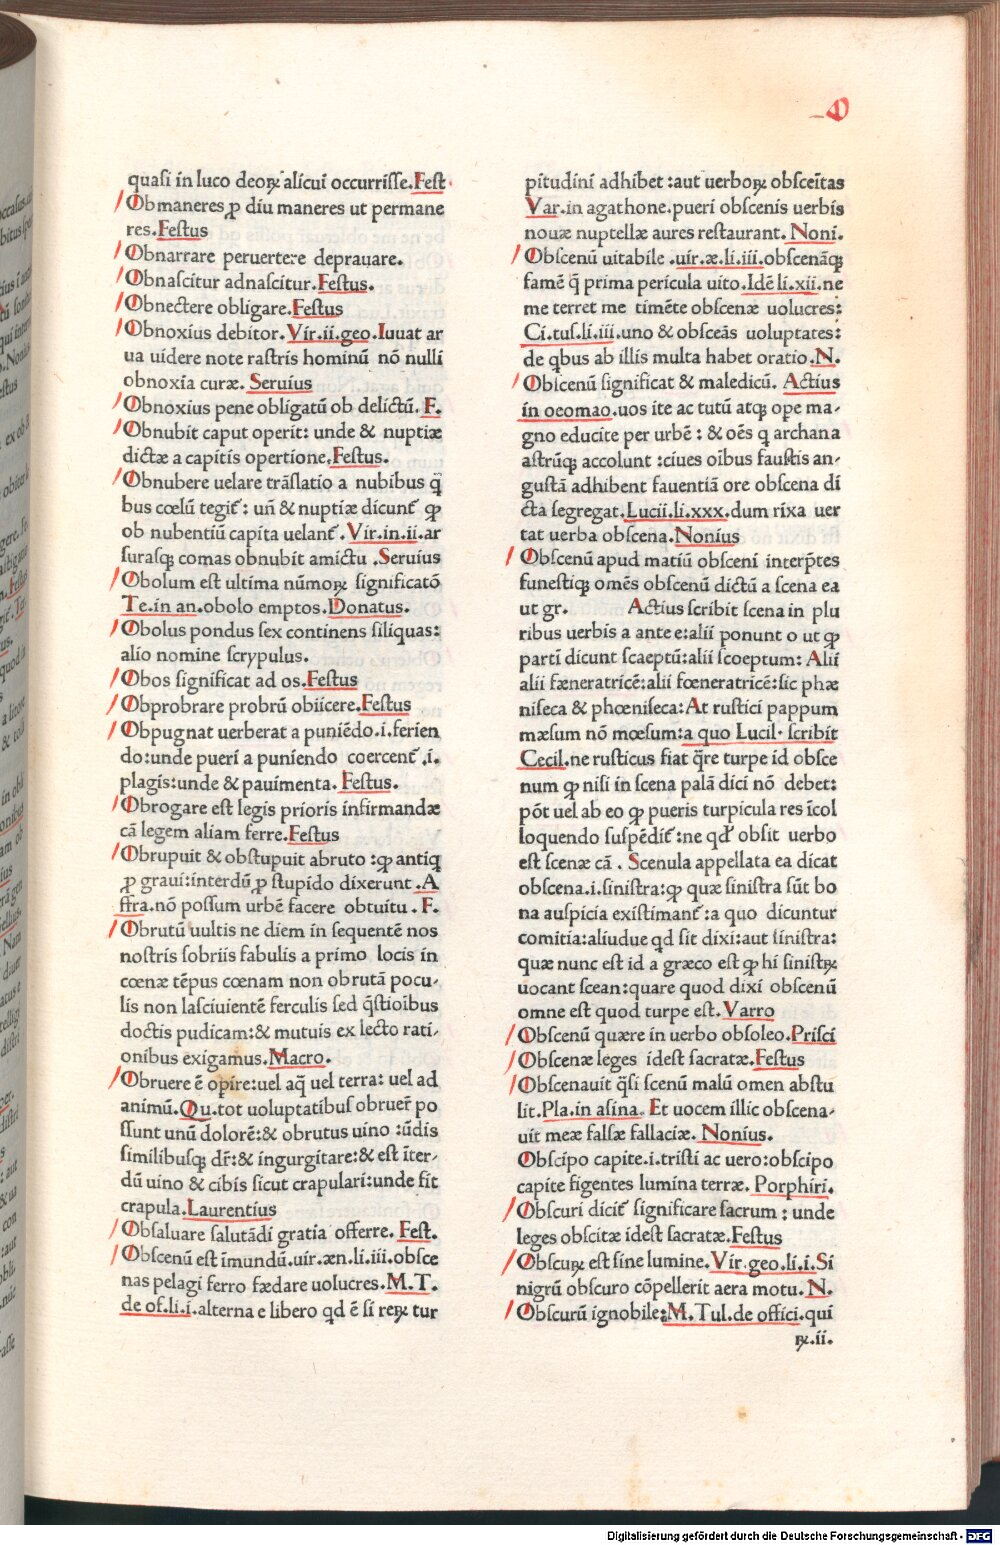 O
quasi in luco deoꝝ alicui occurrisse.Fest.
Obmaneres ꝓ diu maneres ut permane
res.Festus
Obnarrare peruertere deprauare.
Obnascitur adnascitur.Festus.
Obnectere obligare.Festus
Obnoxius debitor.Vir.ii.geo.Iuuat ar
ua uidere note rastris hominū nō nulli
obnoxia curæ. Seruius
Obnoxius pene obligatū ob delictū. F.
Obnubit caput operit: unde & nuptiæ
dictæ a capitis opertione.Festus.
Obnubere uelare trāslatio a nubibus q̄
bus cœlū tegit᷑: uñ & nuptiæ dicunt᷑ ꝙ
ob nubentiū capita uelant᷑ .Vir.in.ii.ar
surasqꝫ comas obnubit amictu .Seruius
Obolum est ultima nūmoꝝ significatō
Te.in an.obolo emptos.Donatus.
Obolus pondus sex continens siliquas:
alio nomine scrypulus.
Obos significat ad os.Festus
Obprobrare probrū obiicere.Festus
Obpugnat uerberat a puniēdo.i.ferien
do:unde pueri a puniendo coercent᷑ .i.
plagis:unde & pauimenta. Festus.
Obrogare est legis prioris infirmandæ
cā legem aliam ferre.Festus
Obrupuit & obstupuit abruto :ꝙ antiq
ꝓ graui:interdū ꝓ stupido dixerunt .A
ffra.nō possum urbē facere obtuitu . F.
Obrutū uultis ne diem in sequentē nos
nostris sobriis fabulis a primo locis in
cœnæ tēpus cœnam non obrutā pocu-
lis non lasciuientē ferculis sed q̄stioibus
doctis pudicam:& mutuis ex lecto rati-
onibus exigamus.Macro.
Obruere ē opire:uel aq̄ uel terra: uel ad
animū.Qu.tot uoluptatibus obruer̄ po
ssunt unū dolorē:& obrutus uino :ūdis
similibusqꝫ dr̄:& ingurgitare:& est īter-
dū uino & cibis sicut crapulari:unde fit
crapula.Laurentius
Obsaluare salutādi gratia offerre. Fest.
Obscenū est īmundū.uir.æn.li.iii.obsce
nas pelagi ferro fædare uolucres.M.T.
de of.li.i.alterna e libero qd ē si reꝝ tur
pitudini adhibet :aut uerboꝝ obsceītas
Var.in agathone.pueri obscenis uerbis
nouæ nuptellæ aures restaurant. Noni.
Obscenū uitabile .uir.æ.li.iii.obscenāqꝫ
famē q̄ prima pericula uito.Idē li.xii.ne
me terret me timēte obscenæ uolucres:
Ci.tus.li.iii.uno & obsceās uoluptates:
de qbus ab illis multa habet oratio.N.
Obscenū significat & maledicū. Actius
in oeomao.uos ite ac tutū atqꝫ ope ma-
gno educite per urbē : & oēs q archana
astrūqꝫ accolunt :ciues oībus faustis an-
gustā adhibent fauentiā ore obscena di
cta segregat.Lucii.li.xxx.dum rixa uer
tat uerba obscena.Nonius
Obscenū apud matiū obsceni interp̄tes
funestiqꝫ omēs obscenū dictū a scena ea
ut gr. Actius scribit scena in plu
ribus uerbis a ante e:alii ponunt o ut ꝙ
parti dicunt scaeptū:alii scoeptum: Alii
alii fæneratricē:alii fœneratricē:sic phæ
niseca & phœniseca: At rustici pappum
mæsum nō mœsum:a quo Lucil. scribit
Cecil.ne rusticus fiat q̄re turpe id obsce
num ꝙ nisi in scena palā dici nō debet:
pōt uel ab eo ꝙ pueris turpicula res īcol
loquendo suspēdit᷑:ne qd obsit uerbo
est scenæ cā . Scenula appellata ea dicat
obscena.i.sinistra:ꝙ quæ sinistra sūt bo
na auspicia existimant᷑:a quo dicuntur
comitia:aliudue qd sit dixi:aut sinistra:
quæ nunc est id a græco est ꝙ hi sinistꝝ
uocant scean:quare quod dixi obscenū
omne est quod turpe est.Varro
Obscenū quære in uerbo obsoleo.Prisci
Obscenæ leges idest sacratæ.Festus
Obscenauit q̄si scenū malū omen abstu
lit.Pla.in asina. Et uocem illic obscena-
uit meæ falsæ fallaciæ. Nonius.
Obscipo capite.i.tristi ac uero:obscipo
capite figentes lumina terræ. Porphiri.
Obscuri dicit᷑ significare sacrum : unde
leges obscitæ idest sacratæ.Festus
Obscuꝝ est sine lumine. Vir.geo.li.i.Si
nigrū obscuro cōpellerit aera motu. N.
Obscurū ignobile:M.Tul.de offici.qui
ꝝ.ii.
Digitalisierung gefördert durch die Deutsche Forschungsgemeinschaft - DFG